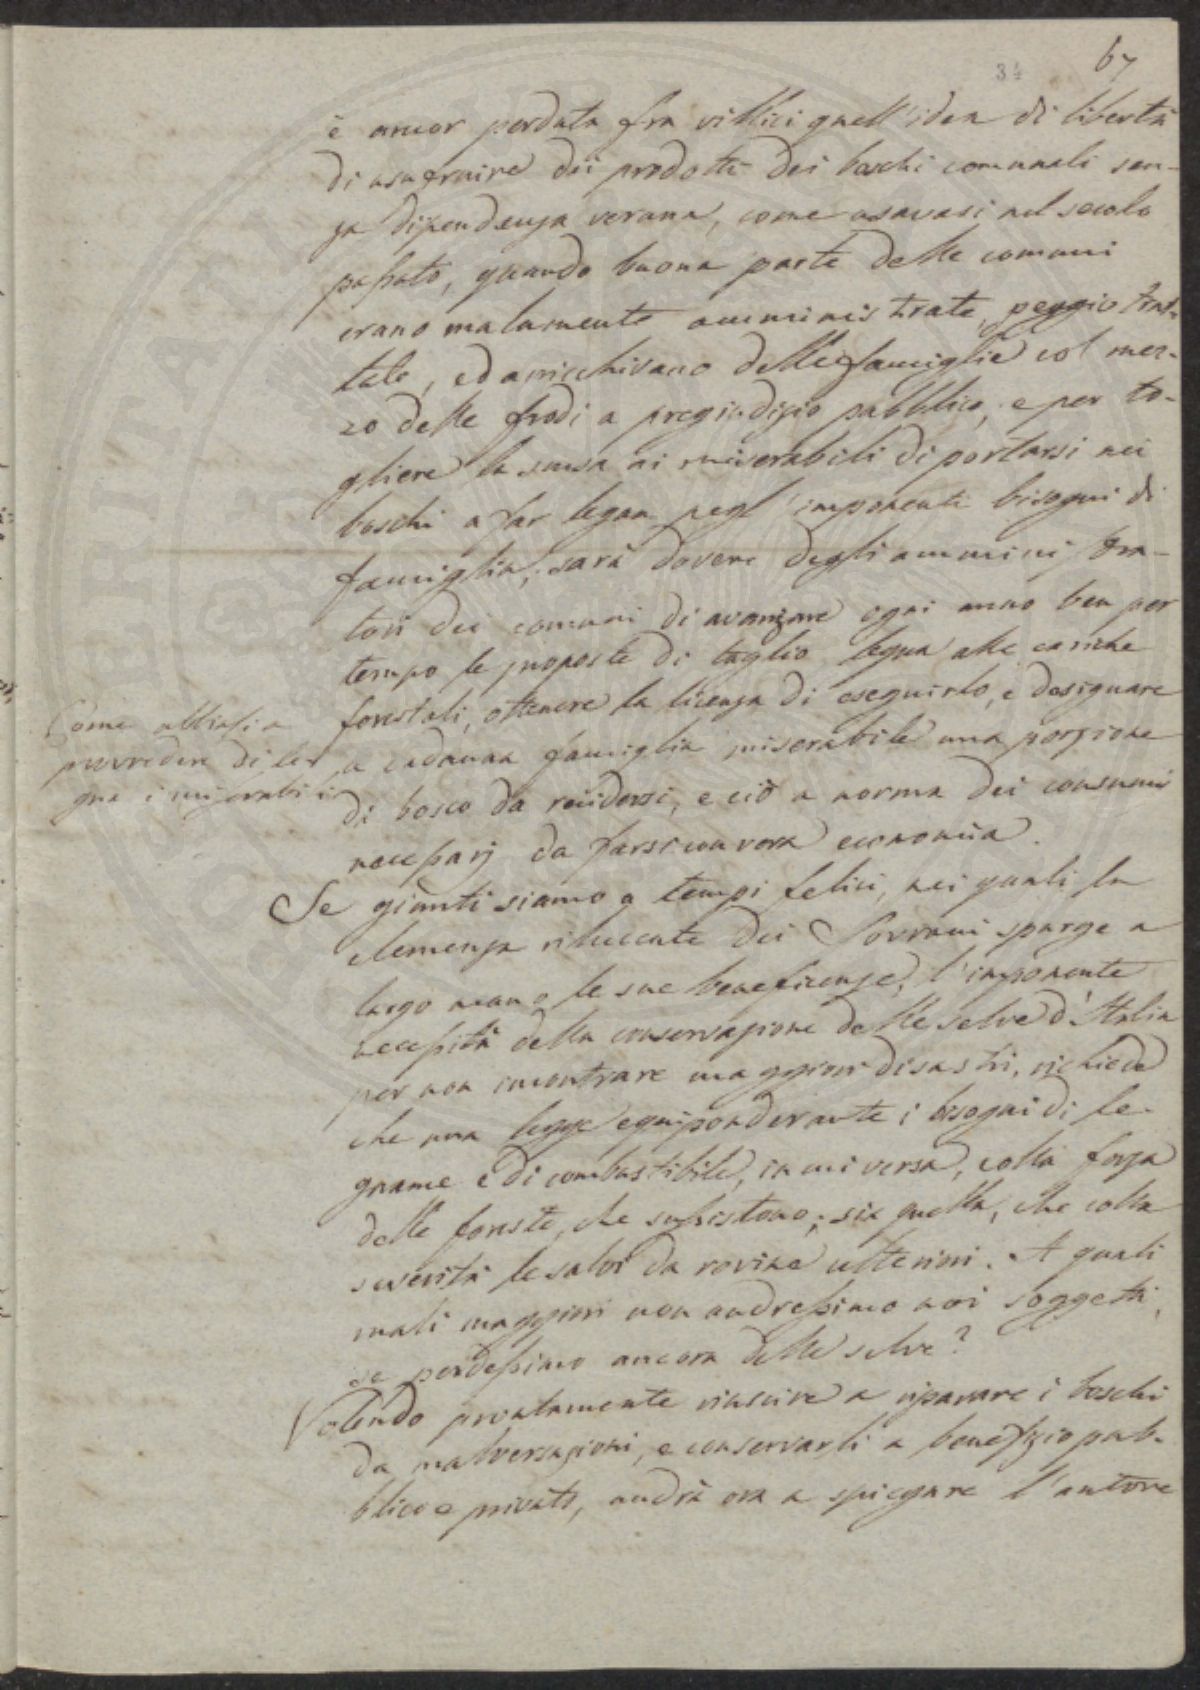 67
34
è ancor perduta fra villici quell'idea di libertà
di usufruire dei prodotti dei boschi comunali sen-
za dipendenza veruna, come usavasi nel secolo
passato, quando buona parte delle comuni
erano malamente amministrate, peggio trat-
tate, ed arricchivano delle famiglie col mez-
zo delle frodi a pregiudizio pubblico, e per to-
gliere la scusa ai miserabili di portarsi nei
boschi a far legna pegl'imponenti bisogni di
famiglia; sarà dovere degli amministra-
tori dei comuni di avanzare ogni anno ben per
tempo le proposte di taglio legna alle cariche
forestali, ottenere la licenza di eseguirlo, e designare
a cadauna famiglia miserabile una porzione
di bosco da recidersi, e ciò a norma dei consumi
necessarj da farsi con vera economia.
Come abbiasi a
provvedere di le-
gna i miserabili
Se giunti siamo a tempi felici, nei quali la
clemenza rilucente dei Sovrani sparge a
largo mano le sue beneficenze, l'imponente
necessità della conservazione delle selve d'Italia
per non incontrare maggiori disastri, richiede
che una legge equiponderante i bisogni di le-
gname e di combustibile, in universa, colla forza
delle foreste, che sussistono; sia quella, che colla
severità le salvi da rovine ulteriori. A quali
mali maggiori non andressimo noi soggetti,
se perdessimo ancora delle selve?
Volendo prontamente riuscire a riparare i boschi
da malversazioni, e conservarli a benefizio pub-
blico e privato, andrà ora a spiegare l'autore